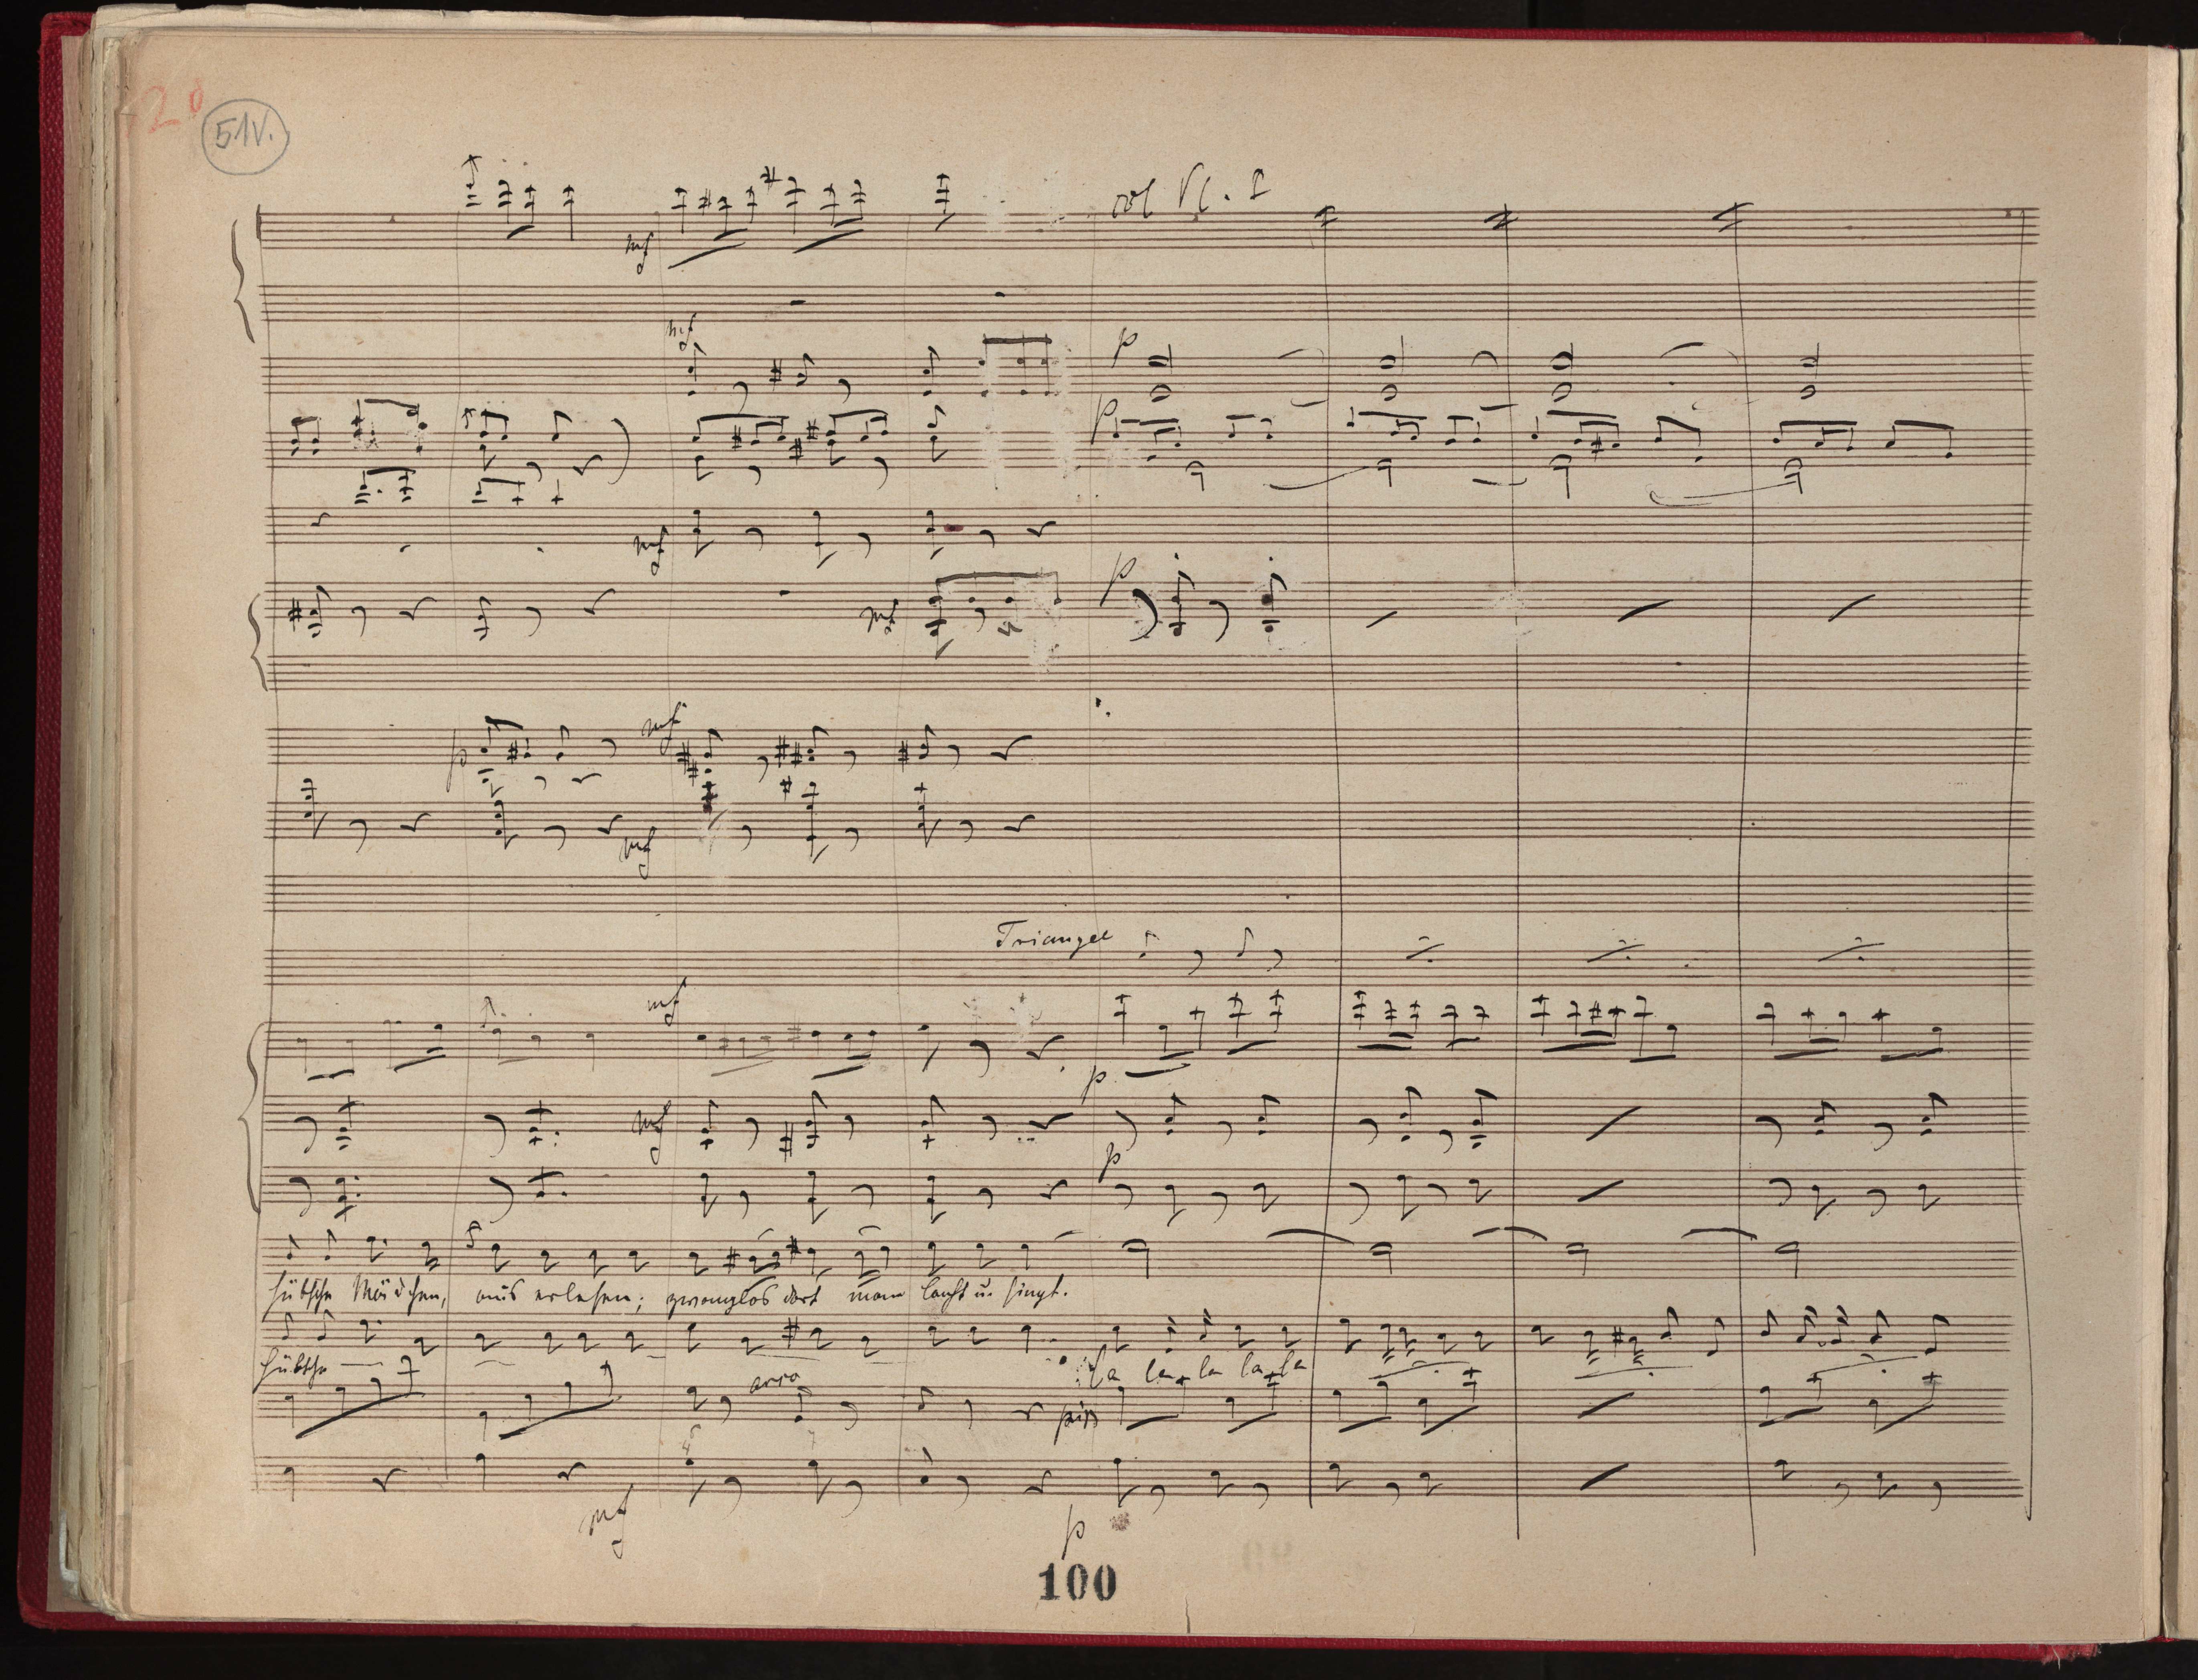 120
51v.
col Vl. I
mf
mf
p
p
mf
p
mf
p
mf
mf
Triangel
mf
p
mf
p
hübsche Mädchen, aus erlesen; zwanglos dort man lacht u. singt.
hübsche
la la la la la
arco
pizz
mf
p
100